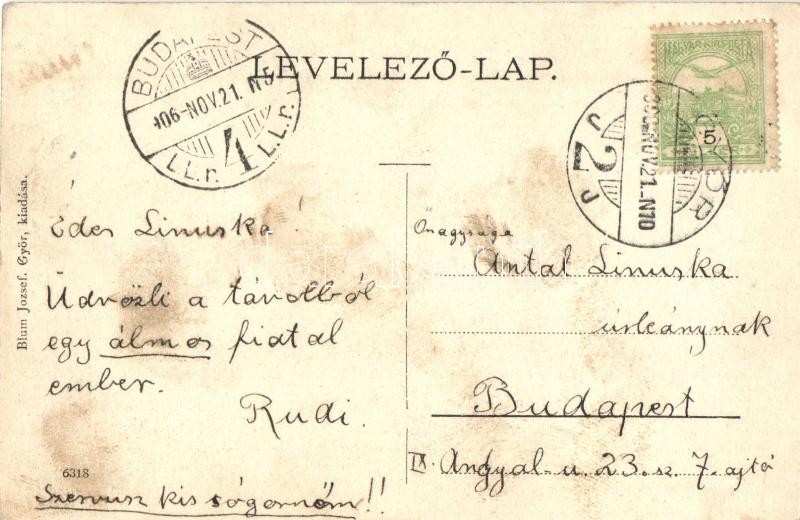 LEVELEZŐ-LAP.
BUDAPEST
906-NOV.21. N9
4
I.L.r. I.L.r.
MAGYAR KIR. POSTA
5
GYŐR
906 NOV.21.-N10
2
Blum József. Győr, kiadása.
Édes Linuska!
Üdvözli a távolból
egy álmos fiatal
ember.
Rudi.
6318
Szervusz kis sógornőm!!
Őnagysága
Antal Linuska
úrleánynak
Budapest
IX. Angyal-u. 23. sz. 7. ajtó